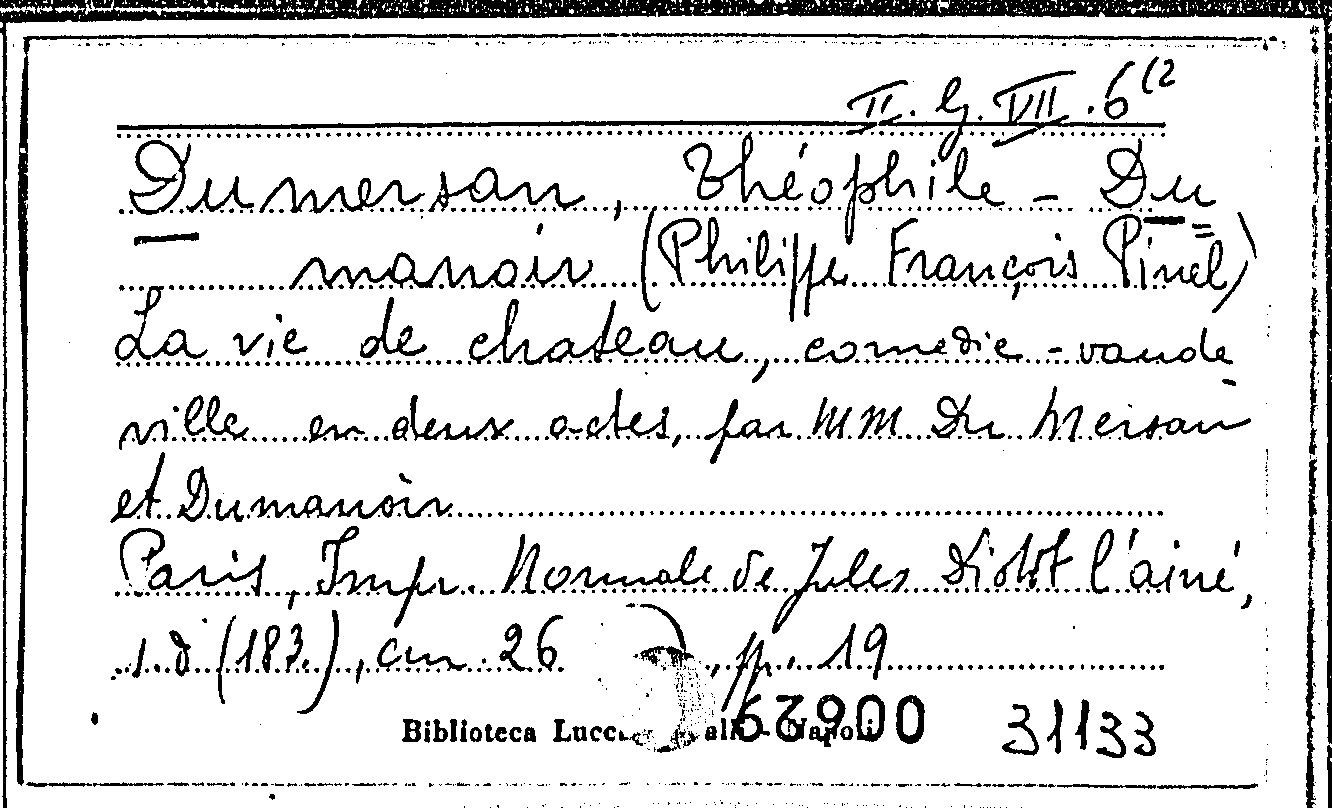 II. G. VII. 6 (2
Dumersan, Théophile - Du
manoir (Philippe François Pinel)
La vie de chateau, comedie - vaude
ville en deux actes, par MM Du Mersan
et Dumanoir
Paris, Impr. Normale de Jules Didot l'ainé,
s.d (183.), cm. 26 , pp. 19
Biblioteca Lucc Napoli 00629 31133